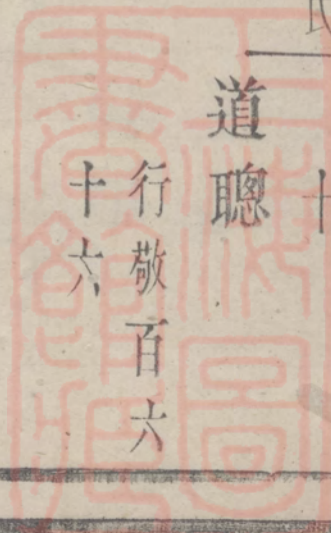 十
道聰
行敬百六
十六